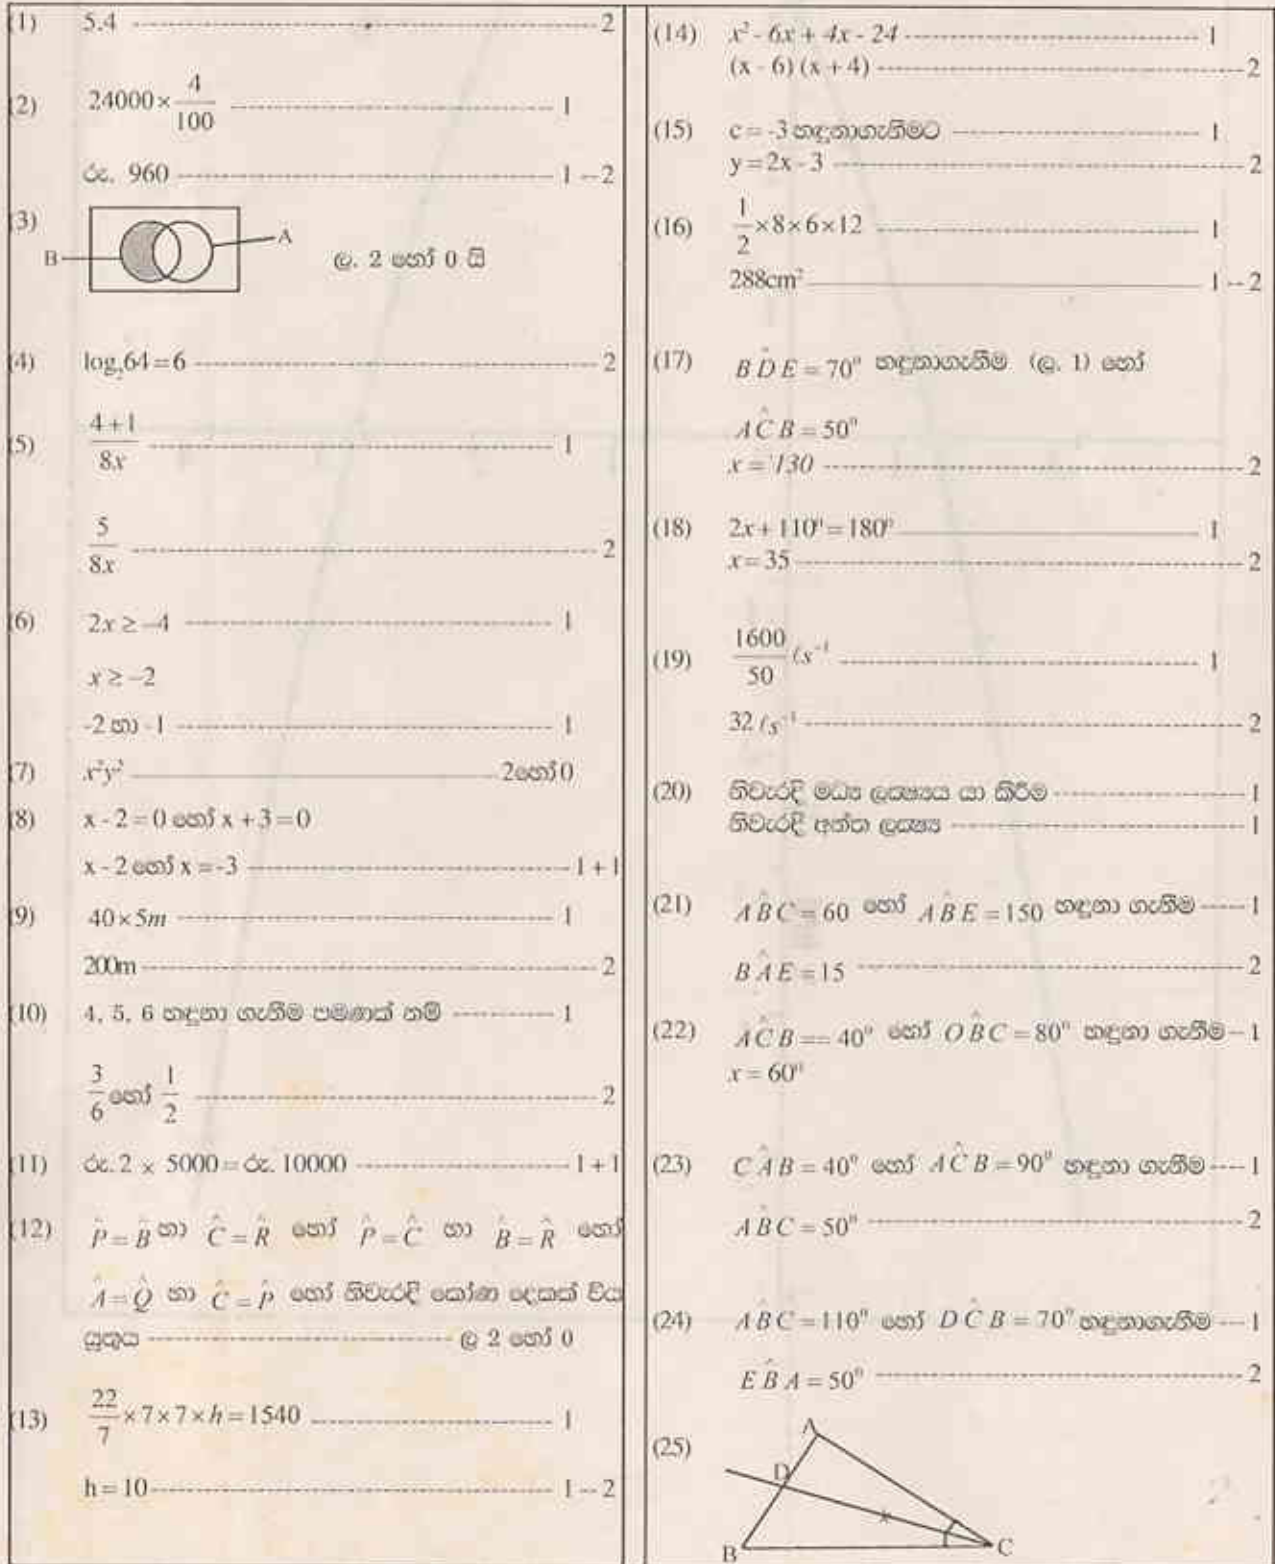 (1) 5.4 ---------- 2
(2) 24000 × 4/100 ---------- 1
රු. 960 ---------- 1 -- 2
(3) B A ල. 2 හෝ 0 යි
(4) log₂64 = 6 ---------- 2
(5) 4 + 1/8x ---------- 1
5/8x ---------- 2
(6) 2x ≥ -4 ---------- 1
x ≥ -2
-2 හා -1 ---------- 1
(7) x²y² ---------- 2හෝ 0
(8) x - 2 = 0 හෝ x + 3 = 0
x - 2 හෝ x = -3 ---------- 1 + 1
(9) 40 × 5m ---------- 1
200m ---------- 2
(10) 4, 5, 6 හඳුනා ගැනීම පමණක් නම් ---------- 1
3/6 හෝ 1/2 ---------- 2
(11) රු. 2 × 5000 = රු. 10000 ---------- 1 + 1
(12) P̂ = B̂ හා Ĉ = R̂ හෝ P̂ = Ĉ හා B̂ = R̂ හෝ
Â = Q̂ හා Ĉ = P̂ හෝ නිවැරදි කෝණ දෙකක් විය
යුතුය ---------- ල 2 හෝ 0
(13) 22/7 × 7 × 7 × h = 1540 ---------- 1
h = 10 ---------- 1 -- 2
(14) x² - 6x + 4x - 24 ---------- 1
(x - 6) (x + 4) ---------- 2
(15) c = -3 හඳුනාගැනීමට ---------- 1
y = 2x - 3 ---------- 2
(16) 1/2 × 8 × 6 × 12 ---------- 1
288cm² ---------- 1 -- 2
(17) BD̂E = 70⁰ හඳුනාගැනීම (ල. 1) හෝ
AĈB = 50⁰
x = 130 ---------- 2
(18) 2x + 110⁰ = 180⁰ ---------- 1
x = 35 ---------- 2
(19) 1600/50 ℓs⁻¹ ---------- 1
32 ℓs⁻¹ ---------- 2
(20) නිවැරදි මධ්‍ය ලක්‍ෂ්‍යය යා කිරීම ---------- 1
නිවැරදි අන්ත ලක්‍ෂ්‍ය ---------- 1
(21) AB̂C = 60 හෝ AB̂E = 150 හඳුනා ගැනීම ----- 1
BÂE = 15 ---------- 2
(22) AĈB = 40⁰ හෝ OB̂C = 80⁰ හඳුනා ගැනීම -- 1
x = 60⁰
(23) CÂB = 40⁰ හෝ AĈB = 90⁰ හඳුනා ගැනීම ---- 1
AB̂C = 50⁰ ---------- 2
(24) AB̂C = 110⁰ හෝ DĈB = 70⁰ හඳුනාගැනීම --- 1
EB̂A = 50⁰ ---------- 2
(25) A
D
B C